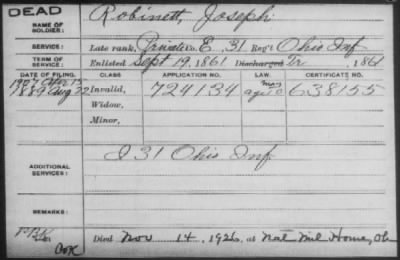 DEAD
NAME OF SOLDIER: Robinett, Joseph
SERVICE: Late rank, Private Co. E, 31 Reg't Ohio Inf
TERM OF SERVICE: Enlisted Sept 19, 1861 Discharged Tr , 1861
DATE OF FILING. CLASS APPLICATION NO. LAW. CERTIFICATE NO.
1907 Apr 15
1889 Aug 22 Invalid, 724134 638155
Widow,
Minor,
ADDITIONAL SERVICES: I 31 Ohio Inf
REMARKS:
Died Nov 14, 1926, at Nat Mil Home, O